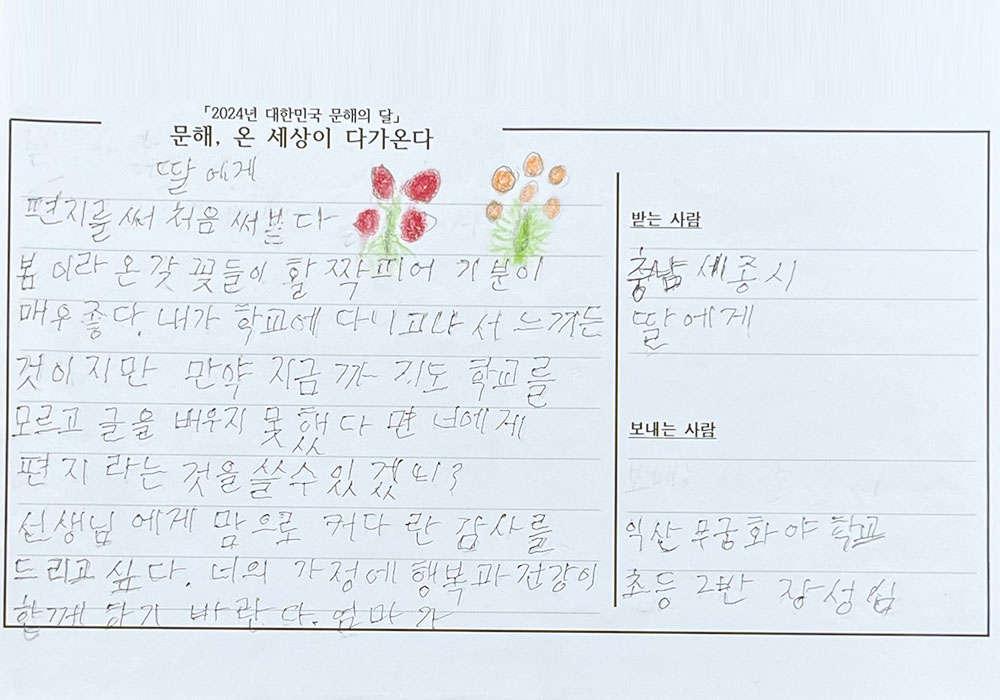 「2024년 대한민국 문해의 달」
문해, 온 세상이 다가온다
딸에게
편지를 써 처음 써본다
봄이라 온갖 꽃들이 활짝피어 기분이
매우 좋다. 내가 학교에 다니고나서 느끼는
것이지만 만약 지금까지도 학교를
모르고 글을 배우지 못했다면 너에게
편지라는 것을 쓸수 있겠니?
선생님에게 맘으로 커다란 감사를
드리고 싶다. 너의 가정에 행복과 건강이
함께 하기 바란다. 엄마가
받는 사람
충남 세종시
딸에게
보내는 사람
익산 무궁화야학교
초등 2반 장성